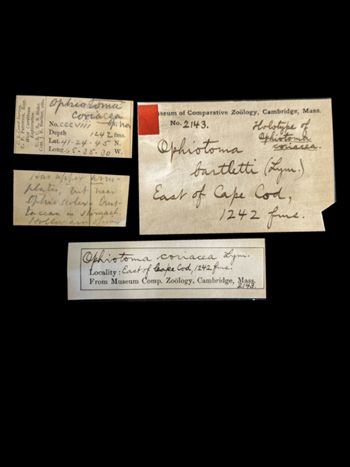 Ophiotoma
coriacea
No. CCCVIII
Depth 1242 fms.
Lat. 41-24-45 N.
Long. 65-35-30 W.
Museum of Comparative Zoölogy, Cambridge, Mass.
No. 2143.
Holotype of
Ophiotoma
coriacea.
Ophiotoma
bartletti (Lym.)
East of Cape Cod,
1242 fms.
upper arm
plates, but near
in stomach
Ophiotoma coriacea Lym.
Locality: East of Cape Cod, 1242 fms.
From Museum Comp. Zoology, Cambridge, Mass.
2143.